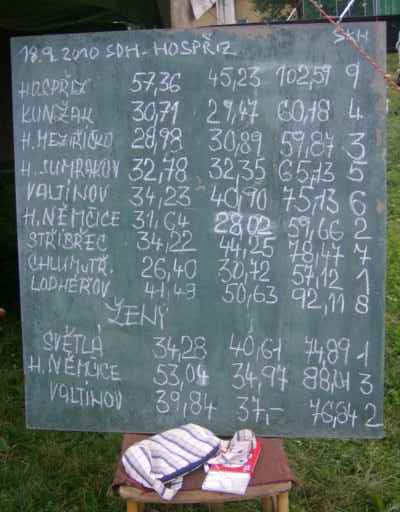 18.9.2010 SDH-HOSPŘÍZ
HOSPŘÍZ 57,36 45,23 102,59 9
KUNŽAK 30,71 29,47 60,18 4
H. MEZIŘÍČKO 28,98 30,89 59,87 3
H. ŠUMRAKOV 32,78 32,35 65,13 5
VALTÍNOV 34,23 40,90 75,13 6
H. NĚMČICE 31,64 28,02 59,66 2
STŘÍBŘEC 34,22 44,25 78,47 7
CHLUMUTŘ. 26,40 30,72 57,12 1
LODHÉŘOV 41,48 50,63 92,11 8
ŽENY
SVĚTLÁ 34,28 40,61 74,89 1
H. NĚMČICE 53,04 34,97 88,01 3
VALTÍNOV 39,84 37,- 76,84 2